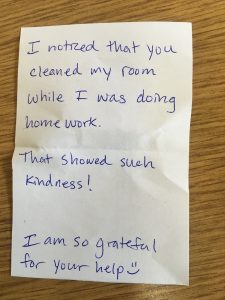 I noticed that you
cleaned my room
while I was doing
home work.
That showed such
kindness!
I am so grateful
for your help